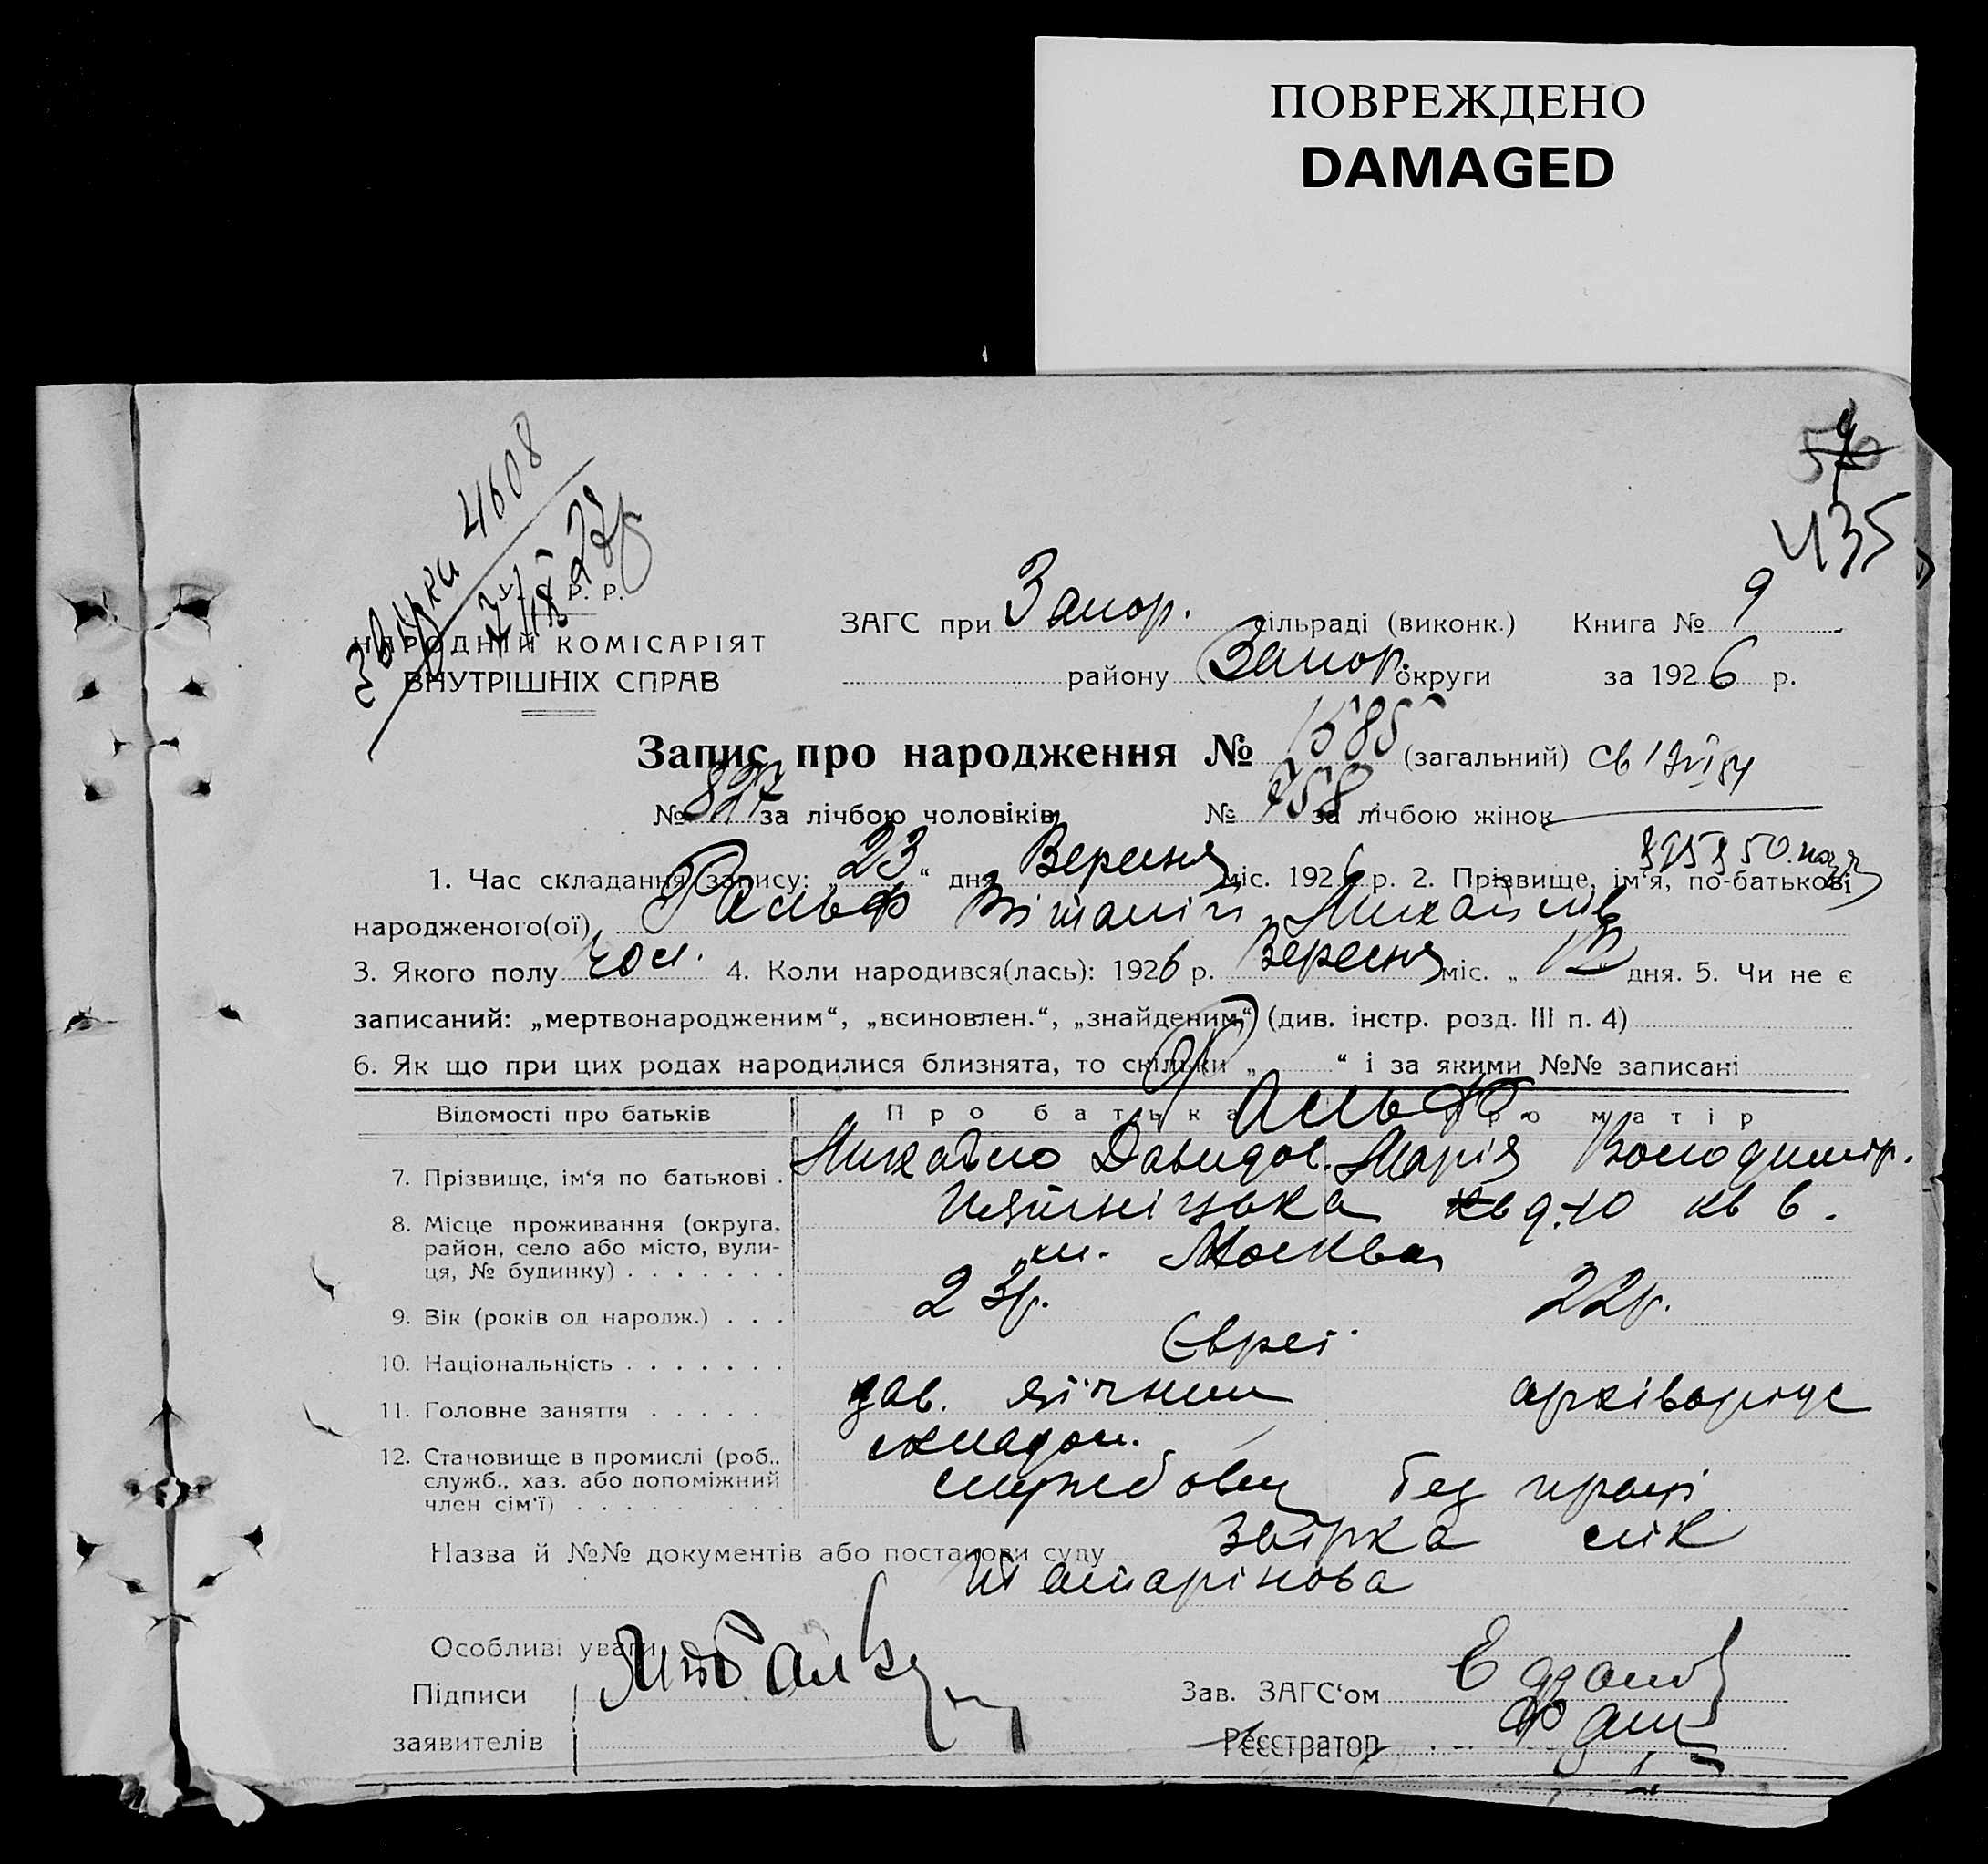 ПОВРЕЖДЕНО
DAMAGED
435
4608
У. Р. Р.
НАРОДНІЙ КОМІСАРІЯТ
ВНУТРІШНІХ СПРАВ
ЗАГС при Запор. сільраді (виконк.) Книга № 9
району Запор. округи за 1926 р.
Запис про народження № 1585 (загальний)
№ 827 за лічбою чоловіків № 758 за лічбою жінок
1. Час складання запису: „23“ дня Вересня міс. 1926 р. 2. Прізвище, ім'я, по-батькові
народженого(ої) Ральф Віталій Михайлів
3. Якого полу чол. 4. Коли народився(лась): 1926 р. Вересня міс. „ “ дня. 5. Чи не є
записаний: „мертвонародженим“, „всиновлен.“, „знайденим“ (див. інстр. розд. III п. 4)
6. Як що при цих родах народилися близнята, то скільки „ “ і за якими №№ записані
Відомості про батьків Про батька Про матір
Ральф
7. Прізвище, ім'я по батькові . Михайло Давидов. Марія Володимір.
8. Місце проживання (округа, район, село або місто, вулиця, № будинку) д. 10 кв 6.
м. Москва
9. Вік (років од народж.) . . . 23р. 22р.
10. Національність . . . . . . . Євреї
11. Головне заняття . . . . . зав. яєчним архіваріус
складом.
12. Становище в промислі (роб., служб., хаз. або допоміжний член сім'ї) . . . . . . . . . службовец без праці
Назва й №№ документів або постанови суду Звірка лік
Особливі уваги
Підписи
заявителів
Зав. ЗАГС'ом
Реєстратор